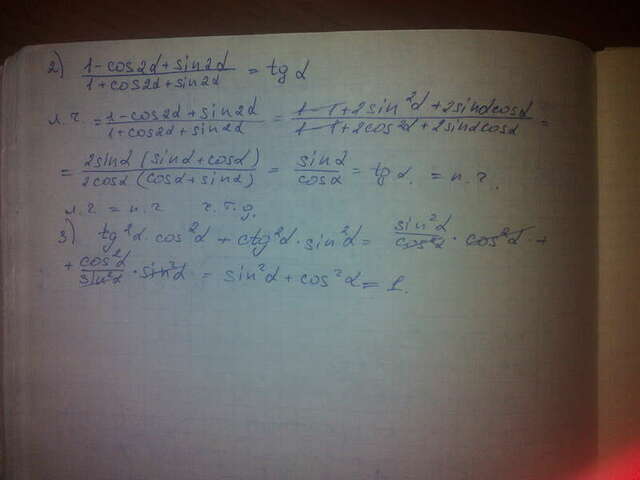 2) (1-cos2α+sin2α)/(1+cos2α+sin2α) = tg α
л.ч. = (1-cos2α+sin2α)/(1+cos2α+sin2α) = (1-1+2sin²α+2sinαcosα)/(1-1+2cos²α+2sinαcosα) =
= (2sinα(sinα+cosα))/(2cosα(cosα+sinα)) = sinα/cosα = tg α. = п.ч.
л.ч = п.ч ч.т.д.
3) tg²α·cos²α + ctg²α·sin²α = sin²α/cos²α · cos²α +
+ cos²α/sin²α · sin²α = sin²α + cos²α = 1.